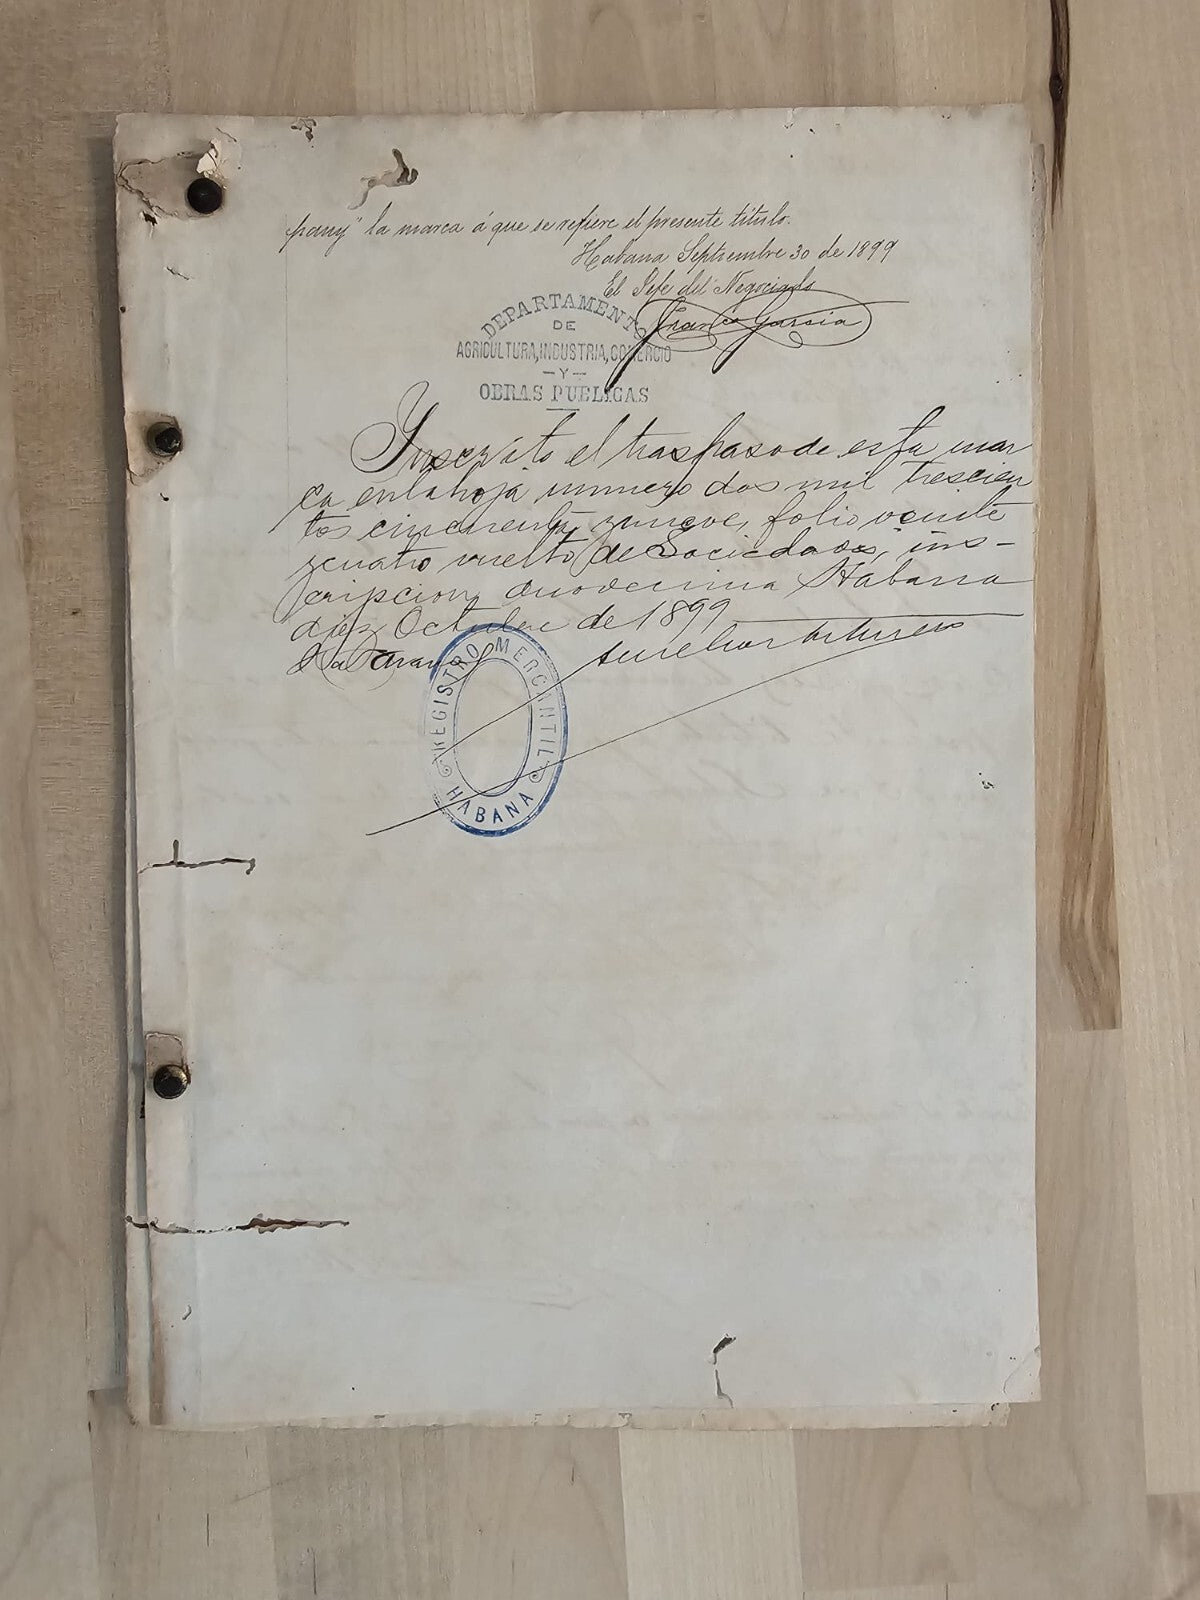 pany" la marca á que se refiere el presente título.
Habana Septiembre 30 de 1899
El Jefe del Negociado
Franco Garcia
DEPARTAMENTO
DE
AGRICULTURA, INDUSTRIA, COMERCIO
—Y—
OBRAS PUBLICAS
Inscrito el traspaso de esta mar
ca en la hoja numero dos mil trescien
tos cincuenta y nueve, folio veinte
y cuatro vuelto de Sociedades, ins-
cripcion duodecima Habana
diez Octubre de 1899
REGISTRO MERCANTIL
HABANA